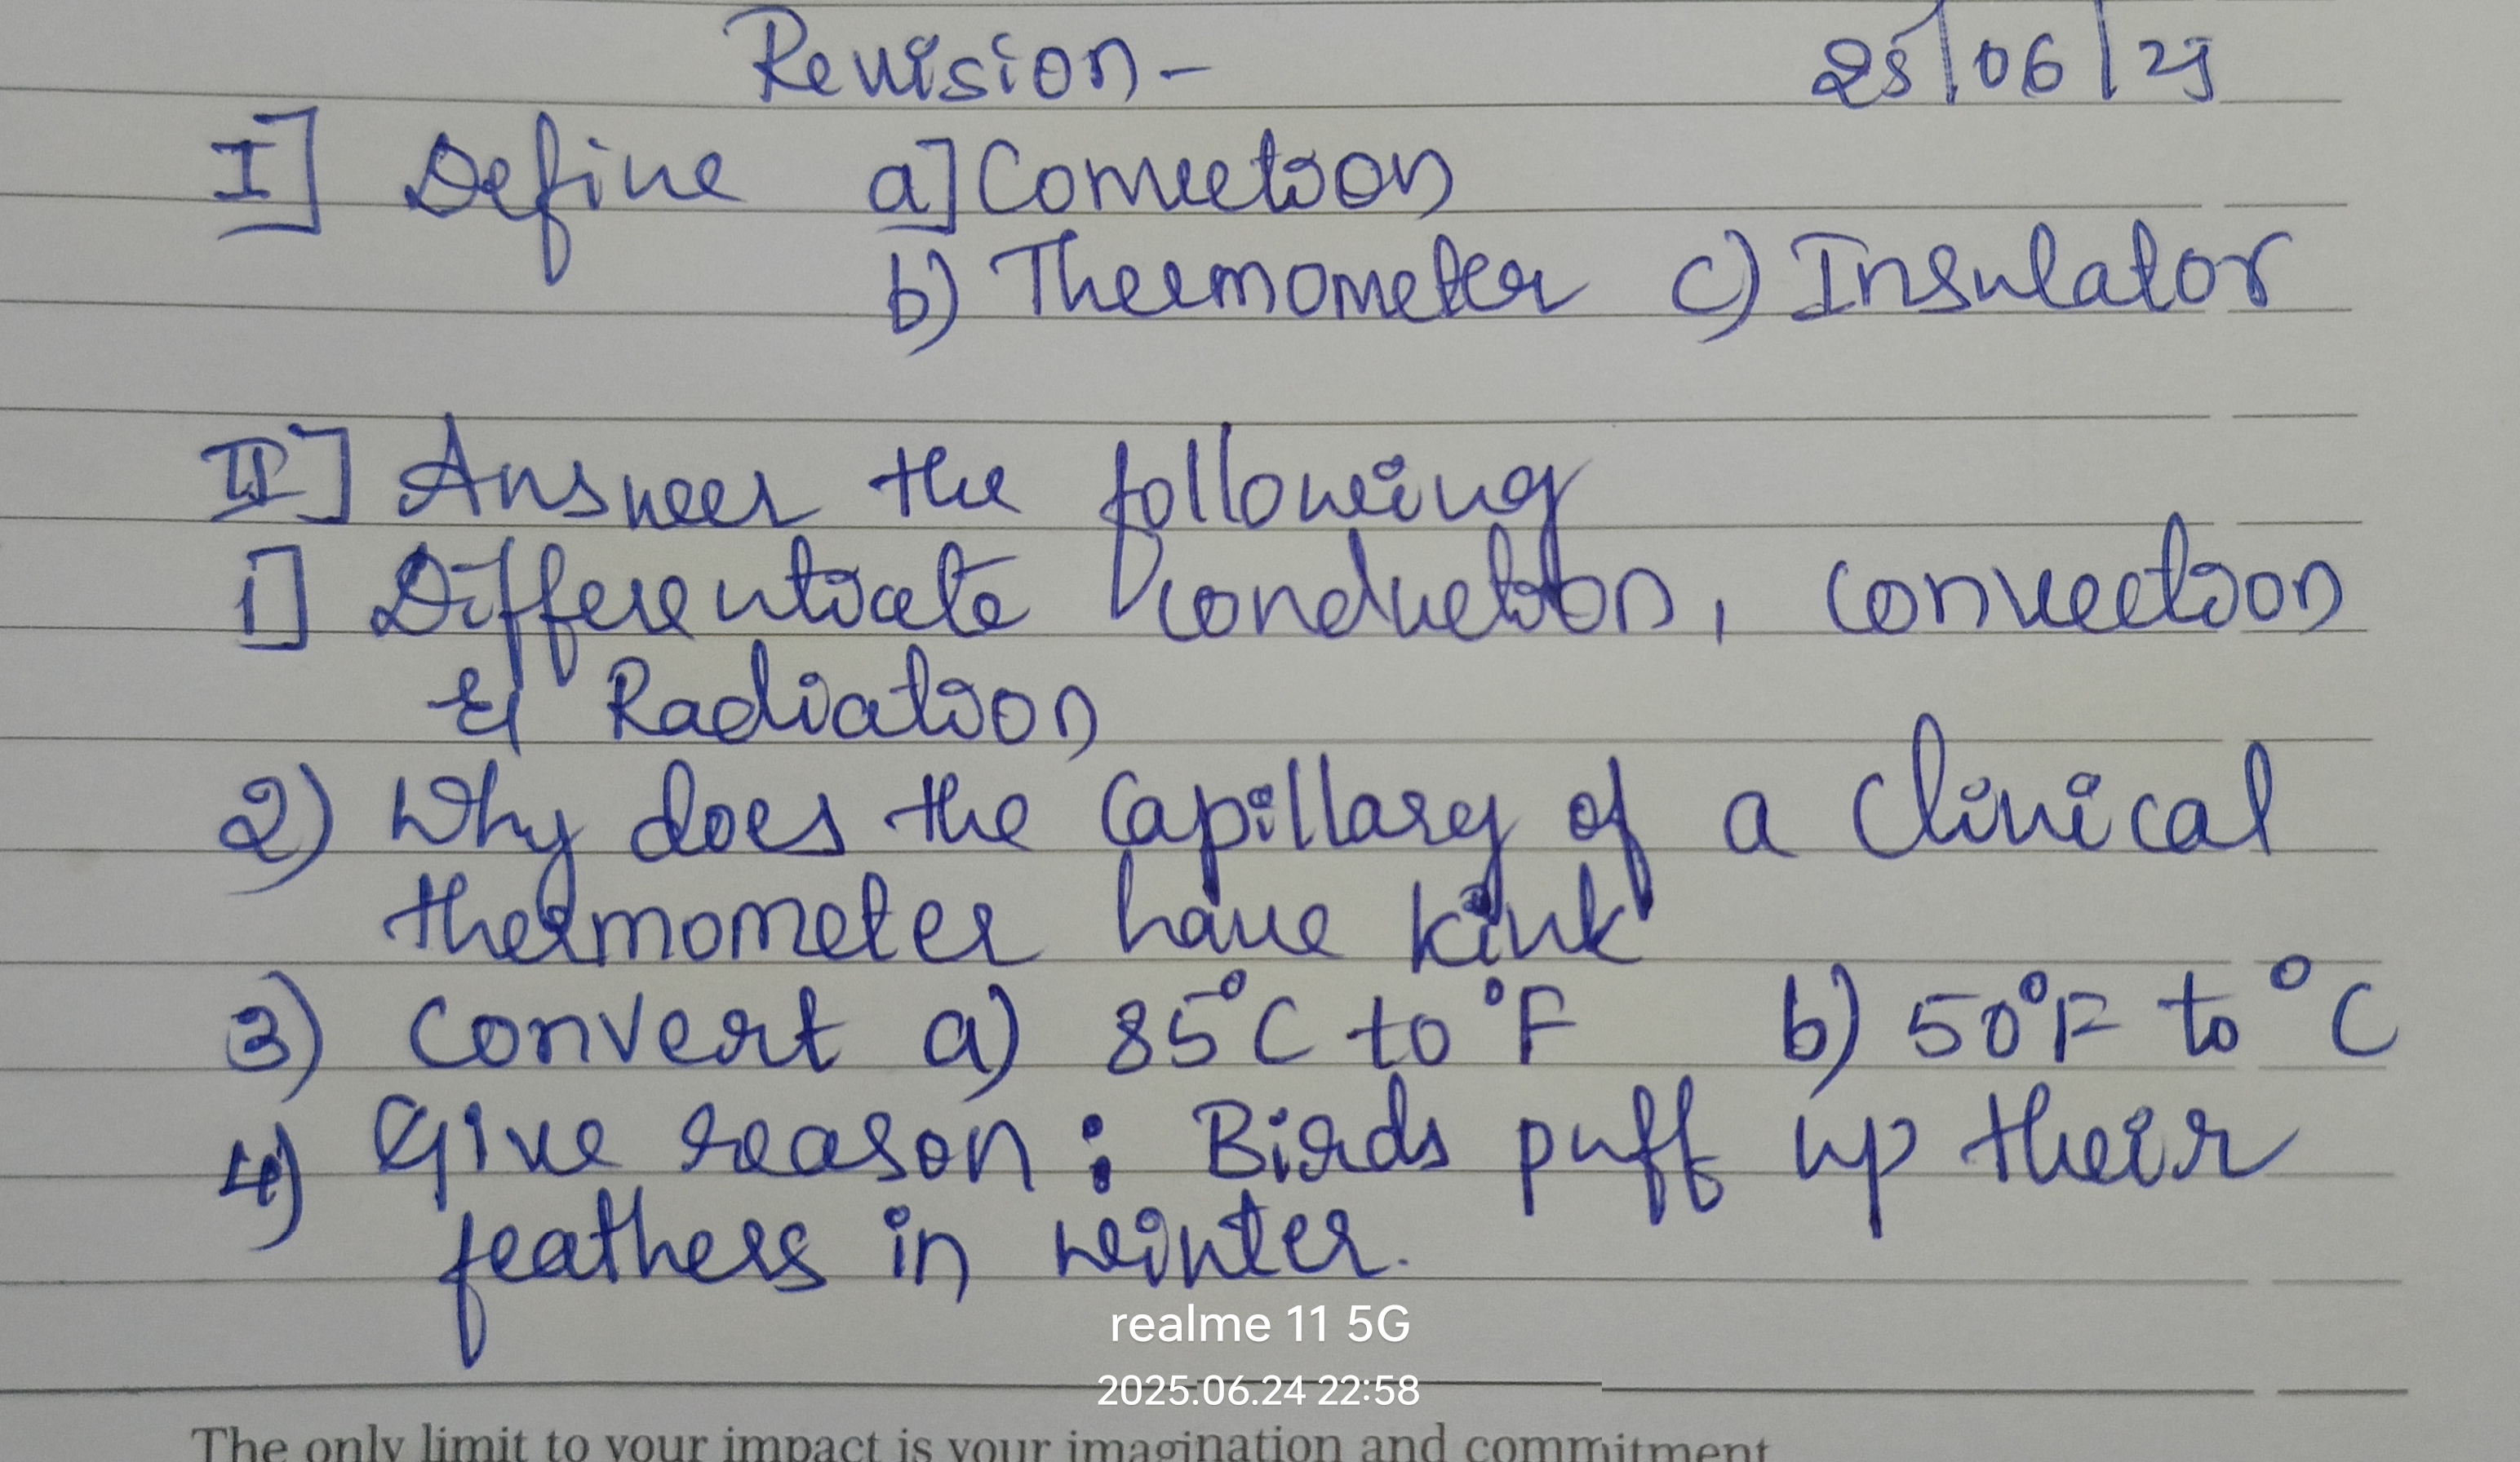 Revision - 25/06/25
I] Define a] Convection
b) Thermometer c) Insulator
II] Answer the following
1] Differentiate conduction, convection
& Radiation
2) Why does the capillary of a clinical
thermometer have kink
3) Convert a) 85°C to °F b) 50°F to °C
4) Give reason : Birds puff up their
feathers in winter.
realme 11 5G
2025.06.24 22:58
The only limit to your impact is your imagination and commitment